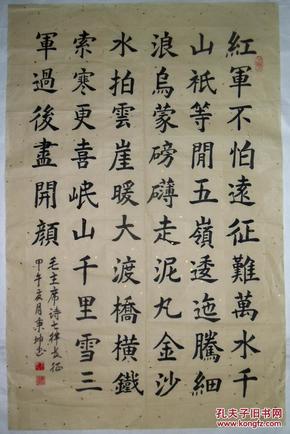 紅軍不怕遠征難萬水千
山衹等閒五嶺逶迤騰細
浪烏蒙磅礴走泥丸金沙
水拍雲崖暖大渡橋橫鐵
索寒更喜岷山千里雪三
軍過後盡開顏
毛主席诗七律長征
甲午夏月
孔夫子旧书网